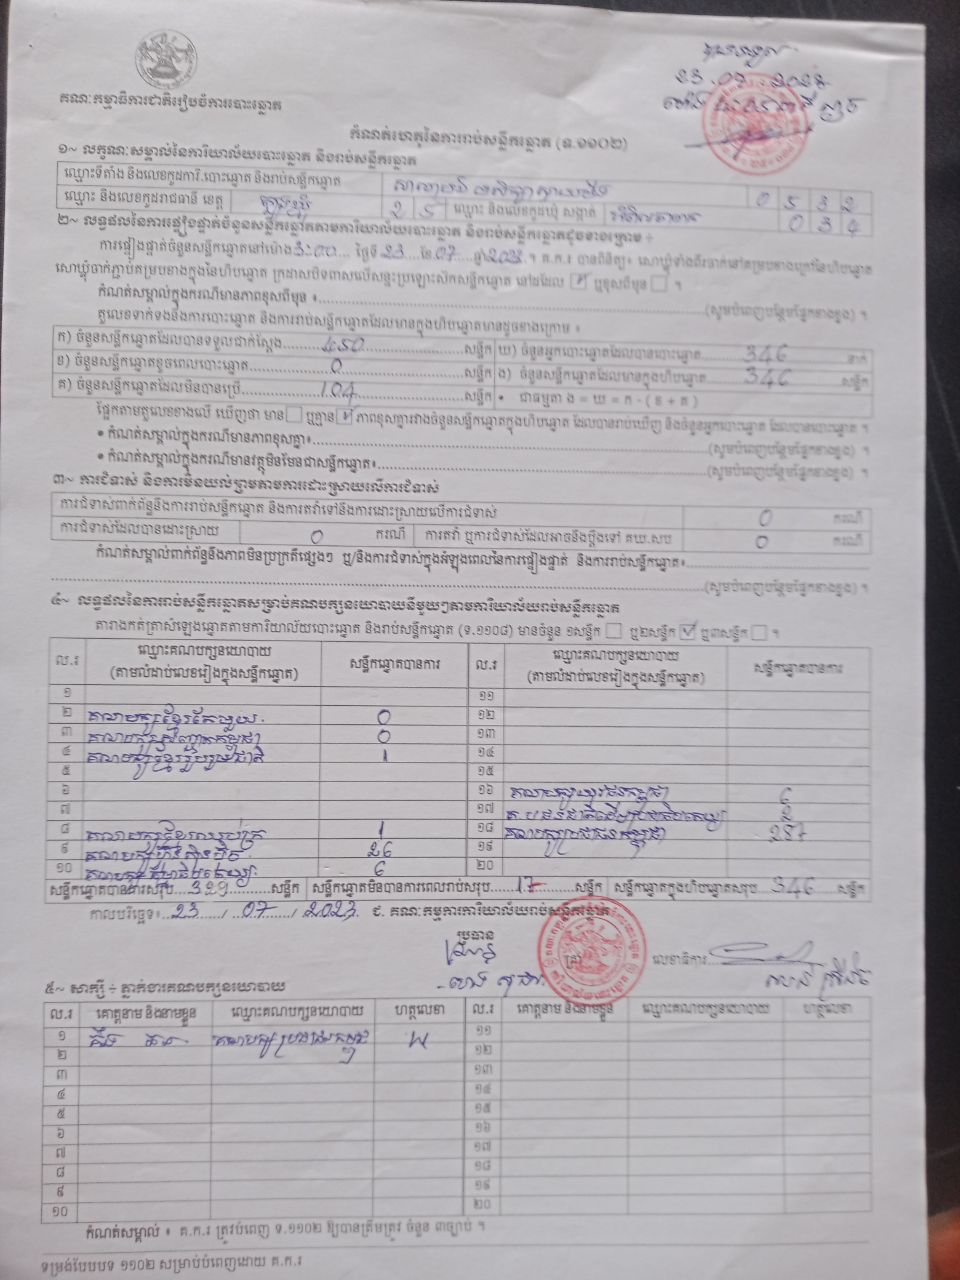 គណៈកម្មាធិការជាតិរៀបចំការបោះឆ្នោត
23.07.2023
កំណត់ហេតុនៃការរាប់សន្លឹកឆ្នោត (ទ.១១០២)
១~ លក្ខណៈសម្គាល់នៃការិយាល័យបោះឆ្នោត និងរាប់សន្លឹកឆ្នោត
ឈ្មោះទីតាំង និងលេខកូដការិ.បោះឆ្នោត និងរាប់សន្លឹកឆ្នោត 0 5 3 2
ឈ្មោះ និងលេខកូដរាជធានី ខេត្ត ត្បូងឃ្មុំ 2 5 ឈ្មោះ និងលេខកូដឃុំ សង្កាត់ 0 3 4
២~ លទ្ធផលនៃការផ្ទៀងផ្ទាត់ចំនួនសន្លឹកឆ្នោតតាមការិយាល័យបោះឆ្នោត និងរាប់សន្លឹកឆ្នោតដូចខាងក្រោម ÷
ការផ្ទៀងផ្ទាត់ចំនួនសន្លឹកឆ្នោតនៅម៉ោង 3:00 ថ្ងៃទី 23 ខែ 07 ឆ្នាំ 2023 ។ គ.ក.រ បានពិនិត្យ៖ សោឃ្លុំទាំងពីរចាក់នៅគម្របខាងក្រៅនៃហិបឆ្នោត
សោឃ្លុំចាក់ភ្ជាប់គម្របខាងក្នុងនៃហិបឆ្នោត ក្រដាសបិទពាសលើសន្ទះប្រឡោះសៀកសន្លឹកឆ្នោត នៅដដែល ☑ ឬខុសពីមុន ☐ ។
កំណត់សម្គាល់ក្នុងករណីមានភាពខុសពីមុន ៖ (សូមបំពេញបន្ថែមផ្នែកខាងខ្នង) ។
តួលេខទាក់ទងនឹងការបោះឆ្នោត និងការរាប់សន្លឹកឆ្នោតដែលមានក្នុងហិបឆ្នោតមានដូចខាងក្រោម ៖
ក) ចំនួនសន្លឹកឆ្នោតដែលបានទទួលជាក់ស្តែង 450 សន្លឹក ឃ) ចំនួនអ្នកបោះឆ្នោតដែលបានបោះឆ្នោត 346 នាក់
ខ) ចំនួនសន្លឹកឆ្នោតខូចពេលបោះឆ្នោត 0 សន្លឹក ង) ចំនួនសន្លឹកឆ្នោតដែលមានក្នុងហិបឆ្នោត 346 សន្លឹក
គ) ចំនួនសន្លឹកឆ្នោតដែលមិនបានប្រើ 104 សន្លឹក • ជាធម្មតា ង = ឃ = ក - ( ខ + គ )
ផ្អែកតាមតួលេខខាងលើ ឃើញថា មាន ☐ ឬគ្មាន ☑ ភាពខុសគ្នារវាងចំនួនសន្លឹកឆ្នោតក្នុងហិបឆ្នោត ដែលបានរាប់ឃើញ និងចំនួនអ្នកបោះឆ្នោត ដែលបានបោះឆ្នោត ។
• កំណត់សម្គាល់ក្នុងករណីមានភាពខុសគ្នា៖ (សូមបំពេញបន្ថែមផ្នែកខាងខ្នង) ។
• កំណត់សម្គាល់ក្នុងករណីមានវត្ថុមិនមែនជាសន្លឹកឆ្នោត៖ (សូមបំពេញបន្ថែមផ្នែកខាងខ្នង) ។
៣~ ការជំទាស់ និងការមិនយល់ព្រមតាមការដោះស្រាយលើការជំទាស់
ការជំទាស់ពាក់ព័ន្ធនឹងការរាប់សន្លឹកឆ្នោត និងការតវ៉ាទៅនឹងការដោះស្រាយលើការជំទាស់ 0 ករណី
ការជំទាស់ដែលបានដោះស្រាយ 0 ករណី ការតវ៉ា ឬការជំទាស់ដែលអាចនឹងប្តឹងទៅ គឃ.សប 0 ករណី
កំណត់សម្គាល់ពាក់ព័ន្ធនឹងភាពមិនប្រក្រតីផ្សេងៗ ឬ/និងការជំទាស់ក្នុងអំឡុងពេលនៃការផ្ទៀងផ្ទាត់ និងការរាប់សន្លឹកឆ្នោត៖
(សូមបំពេញបន្ថែមផ្នែកខាងខ្នង) ។
៤~ លទ្ធផលនៃការរាប់សន្លឹកឆ្នោតសម្រាប់គណបក្សនយោបាយនីមួយៗតាមការិយាល័យរាប់សន្លឹកឆ្នោត
តារាងកត់ត្រាសំឡេងឆ្នោតតាមការិយាល័យបោះឆ្នោត និងរាប់សន្លឹកឆ្នោត (ទ.១១០៨) មានចំនួន ១សន្លឹក ☐ ឬ២សន្លឹក ☑ ឬ៣សន្លឹក ☐ ។
ល.រ ឈ្មោះគណបក្សនយោបាយ សន្លឹកឆ្នោតបានការ ល.រ ឈ្មោះគណបក្សនយោបាយ សន្លឹកឆ្នោតបានការ
(តាមលំដាប់លេខរៀងក្នុងសន្លឹកឆ្នោត) (តាមលំដាប់លេខរៀងក្នុងសន្លឹកឆ្នោត)
១ ១១
២ គណបក្សខ្មែរតែមួយ 0 ១២
៣ 0 ១៣
៤ គណបក្សខ្មែររួបរួមជាតិ 1 ១៤
៥ ១៥
៦ ១៦ គណបក្សយុវជនកម្ពុជា 6
៧ ១៧ 2
៨ 1 ១៨ គណបក្សប្រជាជនកម្ពុជា 287
៩ គណបក្សហ៊្វុនស៊ិនប៉ិច 26 ១៩
១០ 6 ២០
សន្លឹកឆ្នោតបានការសរុប 329 សន្លឹក សន្លឹកឆ្នោតមិនបានការពេលរាប់សរុប 17 សន្លឹក សន្លឹកឆ្នោតក្នុងហិបឆ្នោតសរុប 346 សន្លឹក
កាលបរិច្ឆេទ៖ 23 / 07 / 2023 ជ. គណៈកម្មការការិយាល័យរាប់សន្លឹកឆ្នោត
ប្រធាន
លេខាធិការ
៥~ សាក្សី ÷ ភ្នាក់ងារគណបក្សនយោបាយ
ល.រ គោត្តនាម និងនាមខ្លួន ឈ្មោះគណបក្សនយោបាយ ហត្ថលេខា ល.រ គោត្តនាម និងនាមខ្លួន ឈ្មោះគណបក្សនយោបាយ ហត្ថលេខា
១ គណបក្សប្រជាជនកម្ពុជា ១១
២ ១២
៣ ១៣
៤ ១៤
៥ ១៥
៦ ១៦
៧ ១៧
៨ ១៨
៩ ១៩
១០ ២០
កំណត់សម្គាល់ ៖ គ.ក.រ ត្រូវបំពេញ ទ.១១០២ ឱ្យបានត្រឹមត្រូវ ចំនួន ៣ច្បាប់ ។
ទម្រង់បែបបទ ១១០២ សម្រាប់បំពេញដោយ គ.ក.រ